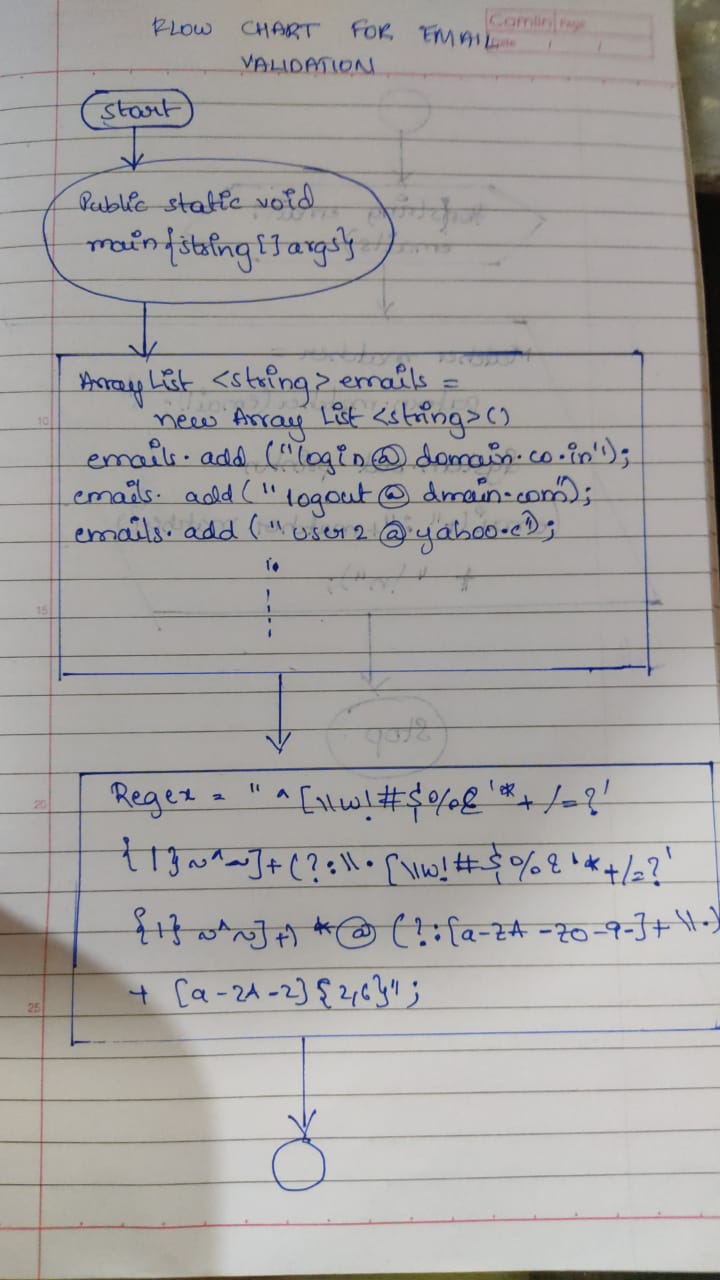 Camlin Page
Date / /
FLOW CHART FOR EMAIL
VALIDATION
Start
Public static void
main {string [] args}
Array List <string> emails =
new Array List <string> ()
emails. add ("login @ domain. co. in");
emails. add (" logout @ dmain.com");
emails. add (" user 2 @ yahoo.c");
10
15
20
Regex = " ^ [\\w!#$%&'*+ /=?'
{|}~^~]+(?:\\. [\\w!#$%&'*+/=?'
{|}~^~]+) *@ (?:[a-zA -Z0-9-]+\\.)
+ [a-zA-Z]{2,6}";
25
Stop